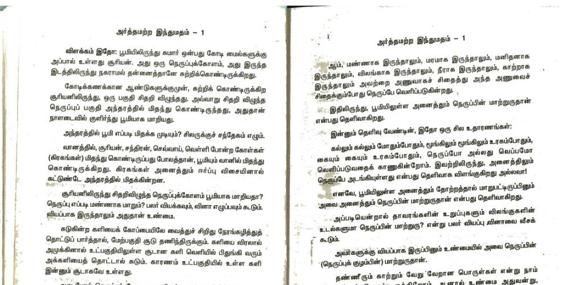 அர்த்தமற்ற இந்துமதம் – 1
விளக்கம் இதோ: பூமியிலிருந்து சுமார் ஒன்பது கோடி மைல்களுக்கு
அப்பால் உள்ளது சூரியன். அது ஒரு நெருப்புக்கோளம், அது இருந்த
இடத்திலிருந்து நகராமல் தன்னைத்தானே சுற்றிக்கொண்டிருக்கிறது.
கோடிக்கணக்கான ஆண்டுகளுக்குமுன், சுற்றிக் கொண்டிருக்கிற
சூரியனிலிருந்து, ஒரு பகுதி சிதறி விழுந்தது. அவ்வாறு சிதறி விழுந்த
நெருப்புப் பகுதி அந்தரத்தில் மிதந்து கொண்டிருந்தது, அதுதான்
நாளடைவில் குளிர்ந்து பூமியாக மாறியது.
அந்தரத்தில் பூமி எப்படி மிதக்க முடியும்? சிலருக்குச் சந்தேகம் எழும்.
வானத்தில், சூரியன், சந்திரன், செவ்வாய், வெள்ளி போன்ற கோள்கள்
(கிரகங்கள்) மிதந்து கொண்டிருப்பது போலத்தான், பூமியும் வானில் மிதந்து
கொண்டிருக்கிறது. கிரகங்கள் அனைத்தும் ஈர்ப்பு விசையினால்
கட்டுண்டே அந்தரத்தில் மிதக்கின்றன.
சூரியனிலிருந்து சிதறிவிழுந்த நெருப்புக்கோளம் பூமியாக மாறியதா?
நெருப்பு எப்படி மண்ணாக மாறும்? பலர் வியக்கவும், வினா எழுப்பவும் கூடும்.
வியப்பாக இருந்தாலும் அதுதான் உண்மை.
சுடுகின்ற களியைக் கோப்பையிலே வைத்துச் சிறிது நேரங்கழித்துத்
தொட்டுப் பார்த்தால், மேற்பகுதி சூடு தணிந்திருக்கும். களியை விரலால்
அழுக்கினால் உட்பகுதியிலிலுள்ள சூடான களி வெளியில் பிதுங்கி வரும்
அக்களியைத் தொட்டால் சுடும். காரணம் உட்பகுதியில் உள்ள களி
இன்னும் சூடாகவே உள்ளது.
அர்த்தமற்ற இந்துமதம் – 1
ஆம், மண்ணாக இருந்தாலும், மரமாக இருந்தாலும், மனிதனாக
இருந்தாலும், விலங்காக இருந்தாலும், நீராக இருந்தாலும், காற்றாக
இருந்தாலும் அவற்றை அணுவாகச் சிதைத்து அந்த அணுவைச்
சிதைக்கும்போது நெருப்பே வெளிப்படுகின்றது.
இதிலிருந்து, பூமியிலுள்ள அனைத்தும் நெருப்பின் மாற்றுருதான்
என்பது தெளிவாகிறது.
இன்னும் தெளிவு வேண்டின், இதோ ஒரு சில உதாரணங்கள்:
கல்லும் கல்லும் மோதும்போதும், மூங்கிலும் மூங்கிலும் உரசும்போதும்,
கையும் கையும் உரசும்போதும், நெருப்போ அல்லது வெப்பமோ
வெளிப்படுவதைக் காணுகின்றோம். இவற்றிலிருந்து, அனைத்திலும்
நெருப்பே அடங்கியுள்ளது என்பது தெளிவாக விளங்குகிறது அல்லவா!
எனவே, பூமியிலுள்ள அனைத்தும் தோற்றத்தால் மாறுபட்டிருப்பினும்
அவை அனைத்தும் நெருப்பின் மாற்றுருதான் என்பது தெளிவாகிறது.
அப்படியென்றால் தாவரங்களின் உறுப்புகளும் விலங்குகளின்
உடல்களுமா நெருப்பின் மாற்றுரு? என்று பலர் வியப்பு வினாவை வீசக்
கூடும்.
அவர்களுக்கு வியப்பாக இருப்பினும் உண்மையில் அவை நெருப்பின்
(நெருப்புக் குழம்பின்) மாற்றுருதான்.
தண்ணீரும் காற்றும் வேறு வேறான பொருள்கள் என்று நாம்